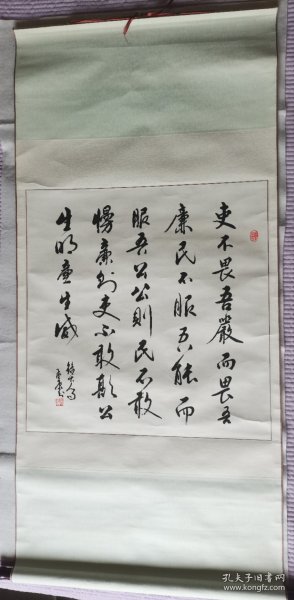 吏不畏吾嚴而畏吾
廉民不服吾能而
服吾公公則民不敢
慢廉則吏不敢欺公
生明廉生威
孔夫子旧书网
www.kongfz.com